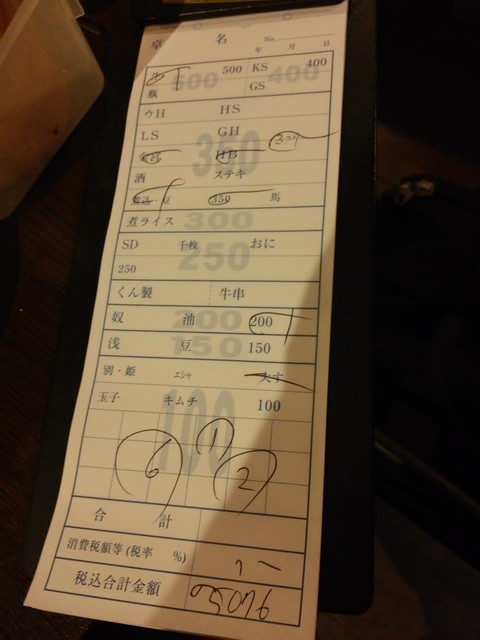 卓 名 No.
年 月 日
生 500 500 KS 400 400
瓶 GS
ウH HS
LS GH
金宮 350 HB
酒 ステキ
煮込・豆 350 馬
煮ライス 300
SD 千枚 おに
250 250
くん製 牛串
奴 油 200 200
浅 豆 150 150
別・姫 エシャ
玉子 キムチ 100 100
6 1 2
合 計
消費税額等(税率 %)
税込合計金額 5076